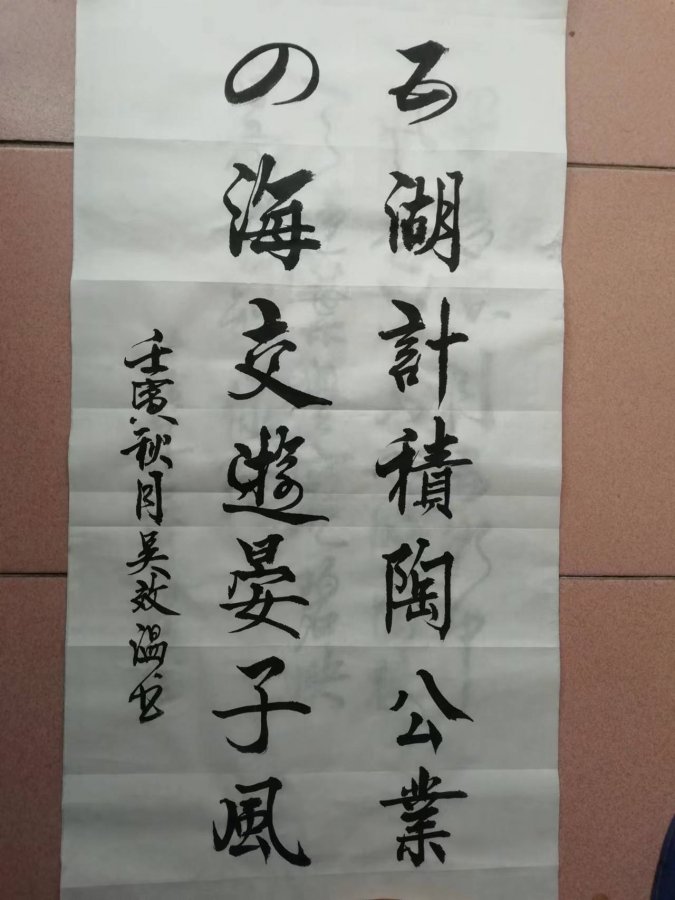 五湖計積陶公業
四海交遊晏子風
壬寅秋月吴效温书